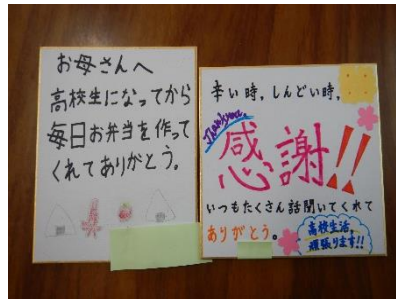 お母さんへ
高校生になってから
毎日お弁当を作って
くれてありがとう。
辛い時，しんどい時，
Thank you
感謝!!
いつもたくさん話聞いてくれて
ありがとう。
高校生活，
頑張ります!!